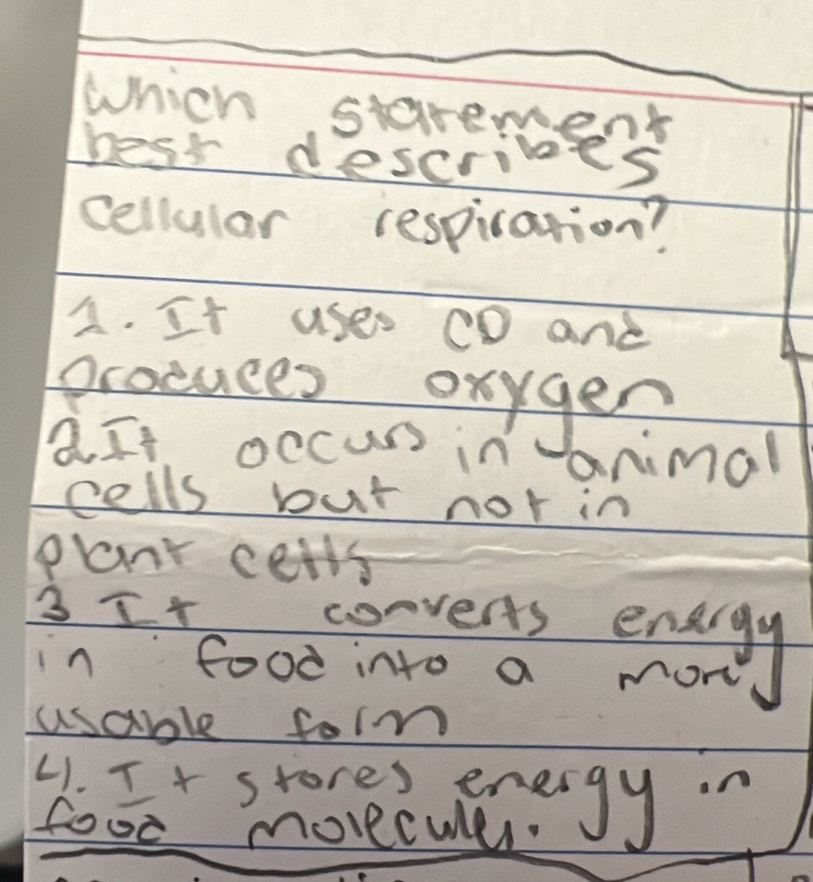 Which statement
best describes
cellular respiration?
1. It uses CO and
produces oxygen
2 It occurs in animal
cells but not in
plant cells
3 It converts energy
in food into a more
usable form
4. It stores energy in
food molecules.